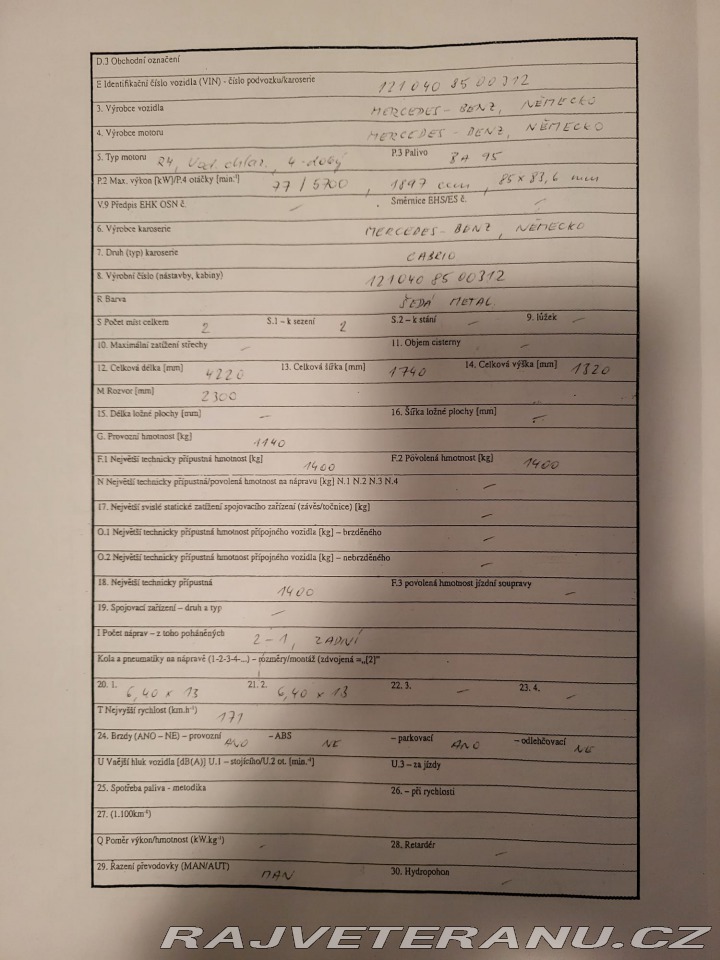 D.3 Obchodní označení
E Identifikační číslo vozidla (VIN) - číslo podvozku/karoserie 121 040 85 00312
3. Výrobce vozidla MERCEDES-BENZ, NĚMECKO
4. Výrobce motoru MERCEDES-BENZ, NĚMECKO
5. Typ motoru R4, vod. chlaz., 4-dobý P.3 Palivo BA 95
P.2 Max. výkon [kW]/P.4 otáčky [min.-1] 77 / 5700, 1897 ccm, 85 x 83,6 mm
V.9 Předpis EHK OSN č. – Směrnice EHS/ES č. –
6. Výrobce karoserie MERCEDES-BENZ, NĚMECKO
7. Druh (typ) karoserie CABRIO
8. Výrobní číslo (nástavby, kabiny) 121 040 85 00312
R Barva ŠEDÁ METAL.
S Počet míst celkem 2 S.1 – k sezení 2 S.2 – k stání – 9. lůžek –
10. Maximální zatížení střechy – 11. Objem cisterny –
12. Celková délka [mm] 4220 13. Celková šířka [mm] 1740 14. Celková výška [mm] 1320
M Rozvor [mm] 2300
15. Délka ložné plochy [mm] – 16. Šířka ložné plochy [mm] –
G. Provozní hmotnost [kg] 1140
F.1 Největší technicky přípustná hmotnost [kg] 1400 F.2 Povolená hmotnost [kg] 1400
N Největší technicky přípustná/povolená hmotnost na nápravu [kg] N.1 N.2 N.3 N.4 –
17. Největší svislé statické zatížení spojovacího zařízení (závěs/točnice) [kg] –
O.1 Největší technicky přípustná hmotnost přípojného vozidla [kg] – brzděného –
O.2 Největší technicky přípustná hmotnost přípojného vozidla [kg] – nebrzděného –
18. Největší technicky přípustná 1400 F.3 povolená hmotnost jízdní soupravy –
19. Spojovací zařízení – druh a typ –
I Počet náprav – z toho poháněných 2 – 1, ZADNÍ
Kola a pneumatiky na nápravě (1-2-3-4-...) – rozměry/montáž (zdvojená =„[2]"
20. 1. 6,40 x 13 21. 2. 6,40 x 13 22. 3. – 23. 4. –
T Nejvyšší rychlost (km.h-1) 171
24. Brzdy (ANO – NE) – provozní ANO – ABS NE – parkovací ANO – odlehčovací NE
U Vnější hluk vozidla [dB(A)] U.1 – stojícího/U.2 ot. [min.-1] U.3 – za jízdy
25. Spotřeba paliva - metodika 26. – při rychlosti
27. (1.100km-1)
Q Poměr výkon/hmotnost (kW.kg-1) – 28. Retardér –
29. Řazení převodovky (MAN/AUT) MAN 30. Hydropohon –
RAJVETERANU.CZ